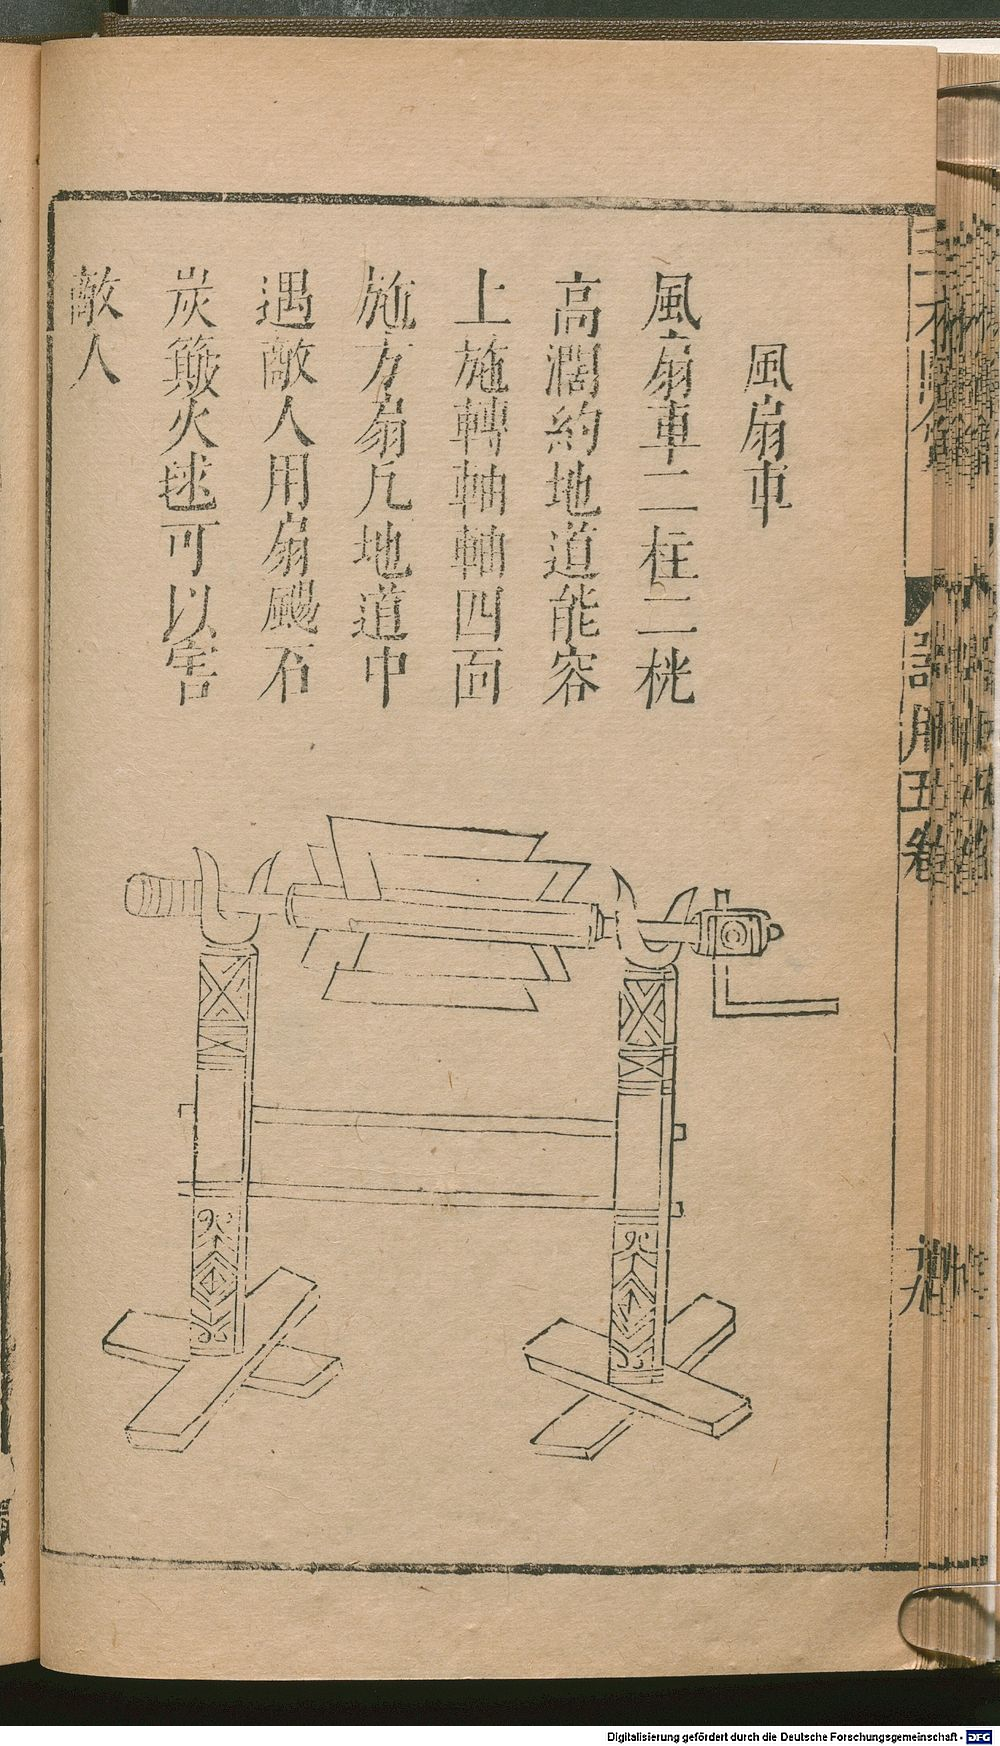 風扇車
風扇車二柱二桄
高濶約地道能容
上施轉軸軸四面
施方扇凡地道中
遇敵人用扇颺石
炭簸火毬可以害
敵人
器用五卷
Digitalisierung gefördert durch die Deutsche Forschungsgemeinschaft - DFG